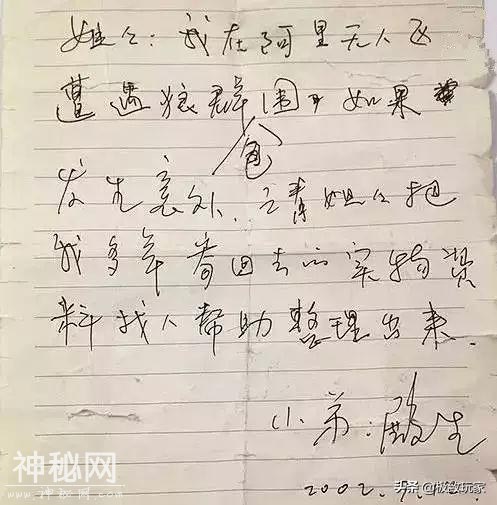 姐々：我在阿里无人区
遭遇狼群包围了 如果
发生意外，请姐々把
我多年寄回去的实物资
料找人帮助整理出来.
小弟：殿生
2002.
神秘网
头条 @极致玩家